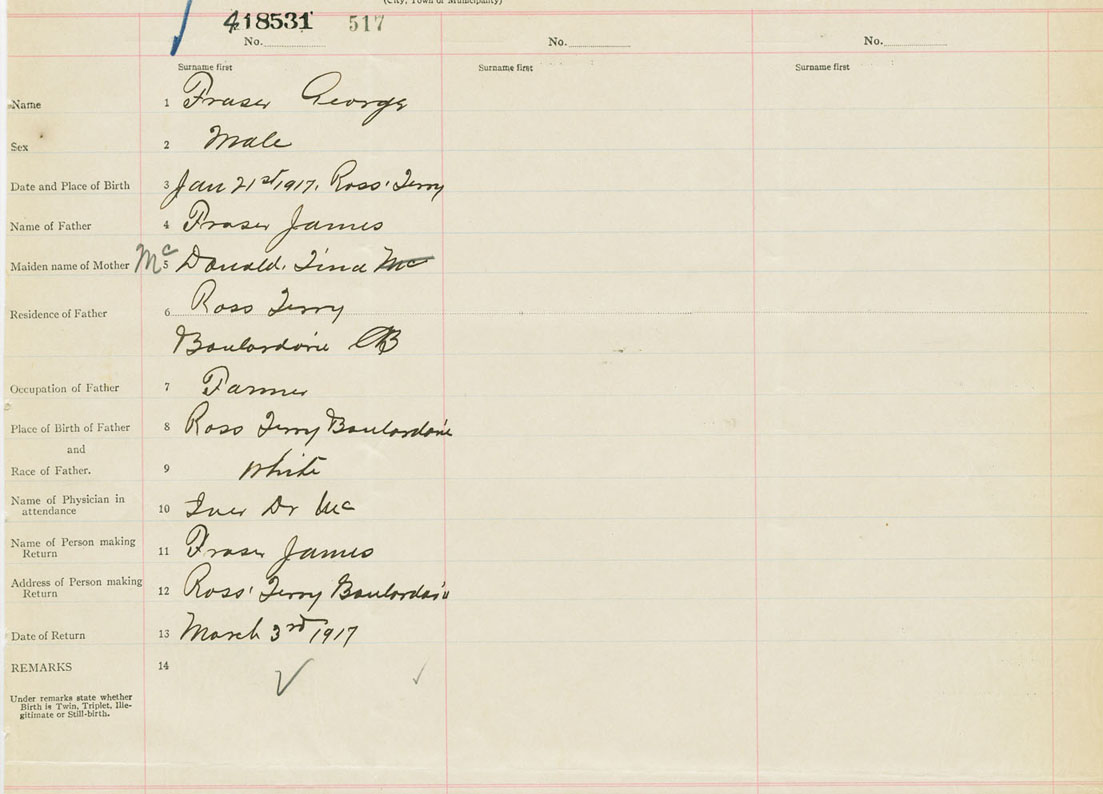 (City, Town or Municipality)
418531 517
No. No. No.
Surname first Surname first Surname first
Name 1 Fraser George
Sex 2 Male
Date and Place of Birth 3 Jan 21st 1917. Ross' Ferry
Name of Father 4 Fraser James
Maiden name of Mother 5 Mc Donald, Tina Mc
Residence of Father 6 Ross Ferry
Boulardarie CB
Occupation of Father 7 Farmer
Place of Birth of Father 8 Ross Ferry Boulardarie
and
Race of Father. 9 White
Name of Physician in
attendance 10 Dr Mc
Name of Person making
Return 11 Fraser James
Address of Person making
Return 12 Ross' Ferry Boulardarie
Date of Return 13 March 3rd 1917
REMARKS 14
Under remarks state whether
Birth is Twin, Triplet, Ille-
gitimate or Still-birth.